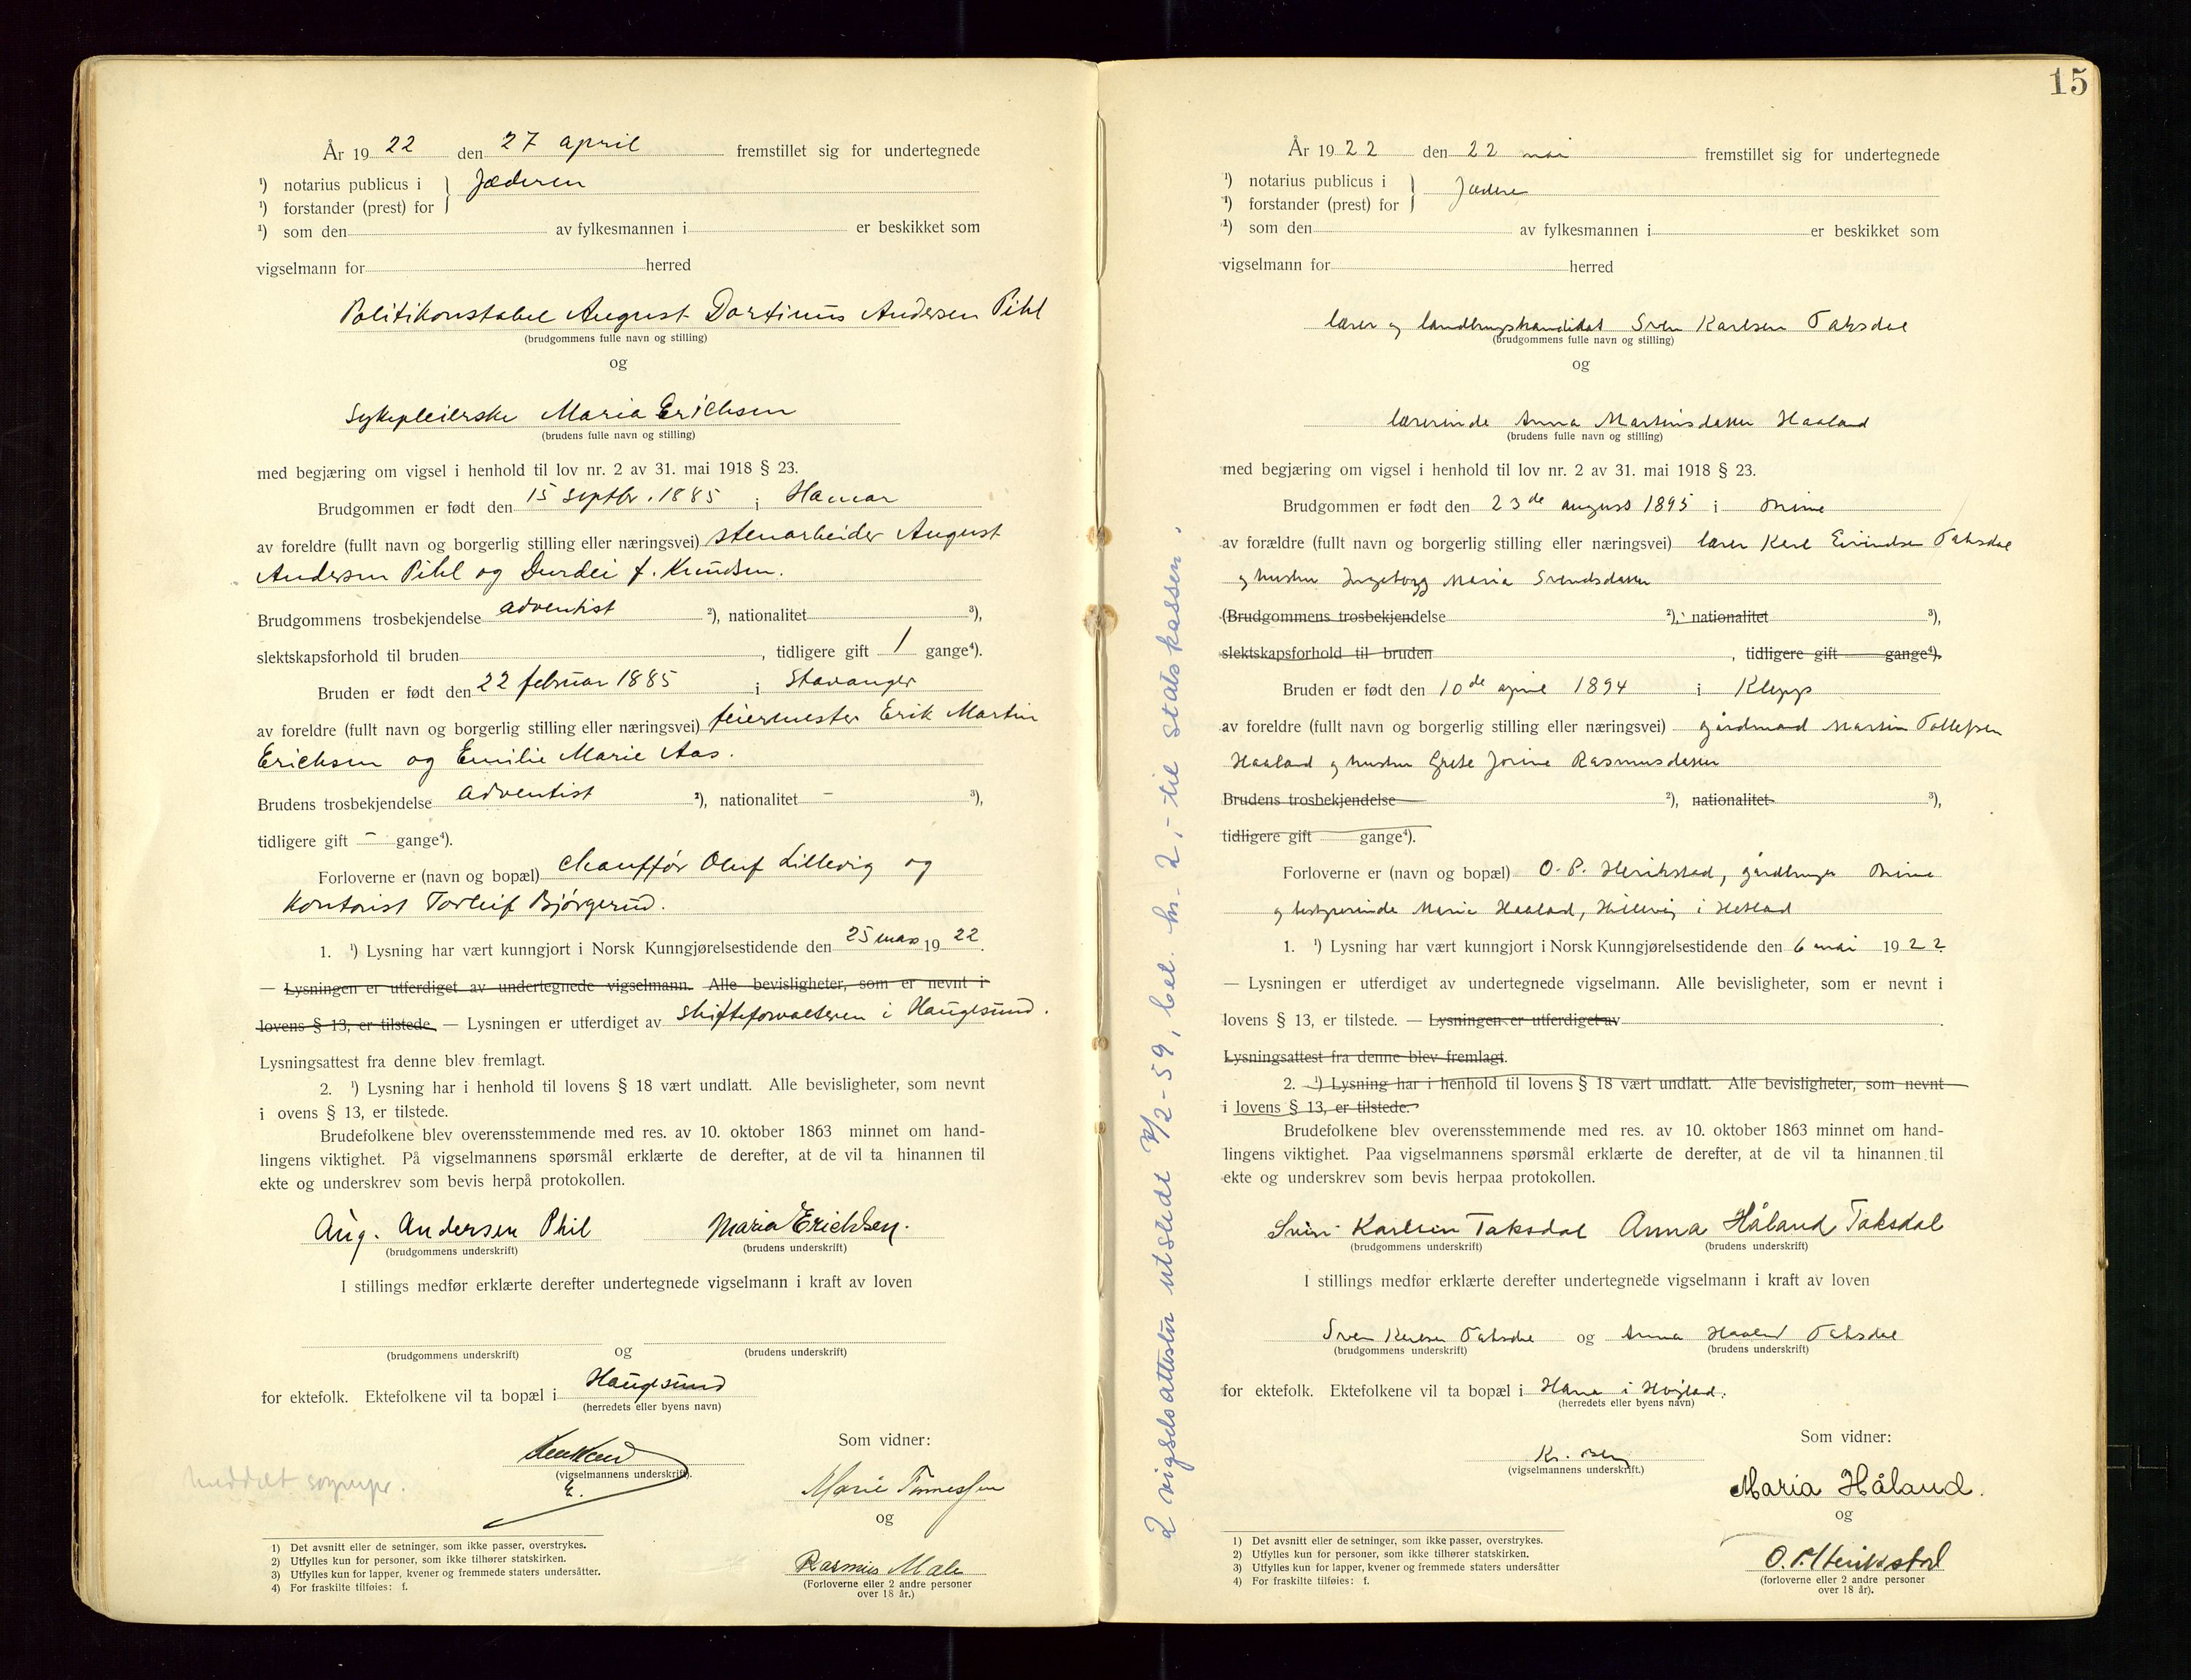 År 19 22 den 27 april fremstillet sig for undertegnede
¹) notarius publicus i } Jæderen
¹) forstander (prest) for
¹) som den av fylkesmannen i er beskikket som
vigselmann for herred
Politikonstabel August Dortinus Andersen Pihl
(brudgommens fulle navn og stilling)
og
Sykepleierske Maria Erichsen
(brudens fulle navn og stilling)
med begjæring om vigsel i henhold til lov nr. 2 av 31. mai 1918 § 23.
Brudgommen er født den 15 septbr. 1885 i Hamar
av foreldre (fullt navn og borgerlig stilling eller næringsvei) stenarbeider August
Andersen Pihl og Durdei f. Knudsen.
Brudgommens trosbekjendelse adventist ²), nationalitet ³),
slektskapsforhold til bruden , tidligere gift 1 gange⁴).
Bruden er født den 22 februar 1885 i Stavanger
av foreldre (fullt navn og borgerlig stilling eller næringsvei) feiermester Erik Martin
Erichsen og Emilie Marie Aas.
Brudens trosbekjendelse adventist ²), nationalitet – ³),
tidligere gift – gange⁴).
Forloverne er (navn og bopæl) Chauffør Oluf Lillevig og
Kontorist Torleif Bjørgerud.
1. ¹) Lysning har vært kunngjort i Norsk Kunngjørelsestidende den 25 mars 19 22.
— Lysningen er utferdiget av undertegnede vigselmann. Alle bevisligheter, som er nevnt i
lovens § 13, er tilstede. — Lysningen er utferdiget av skifteforvalteren i Haugesund.
Lysningsattest fra denne blev fremlagt.
2. ¹) Lysning har i henhold til lovens § 18 vært undlatt. Alle bevisligheter, som nevnt
i ovens § 13, er tilstede.
Brudefolkene blev overensstemmende med res. av 10. oktober 1863 minnet om hand-
lingens viktighet. På vigselmannens spørsmål erklærte de derefter, at de vil ta hinannen til
ekte og underskrev som bevis herpå protokollen.
Aug. Andersen Phil Maria Erichsen.
(brudgommens underskrift) (brudens underskrift)
I stillings medfør erklærte derefter undertegnede vigselmann i kraft av loven
og
(brudgommens underskrift) (brudens underskrift)
for ektefolk. Ektefolkene vil ta bopæl i Haugesund
(herredets eller byens navn)
Som vidner:
(vigselmannens underskrift).
E.
meddelt sognepr.
Marie Tønnessen
og
Rasmus Male
(Forloverne eller 2 andre personer
over 18 år.)
1) Det avsnitt eller de setninger, som ikke passer, overstrykes.
2) Utfylles kun for personer, som ikke tilhører statskirken.
3) Utfylles kun for lapper, kvener og fremmede staters undersåtter.
4) For fraskilte tilføies: f.
2 vigselsattester utstedt 4/2-59, bet. kr. 2,- til statskassen.
15
År 19 22 den 22 mai fremstillet sig for undertegnede
¹) notarius publicus i } Jædere
¹) forstander (prest) for
¹) som den av fylkesmannen i er beskikket som
vigselmann for herred
lærer og landbrugskandidat Sven Karlsen Taksdal
(brudgommens fulle navn og stilling)
og
lærerinde Anna Martinsdatter Haaland
(brudens fulle navn og stilling)
med begjæring om vigsel i henhold til lov nr. 2 av 31. mai 1918 § 23.
Brudgommen er født den 23de august 1895 i Thime
av forældre (fullt navn og borgerlig stilling eller næringsvei) lærer Karl Eivindsen Taksdal
og hustru Ingeborg Maria Svendsdatter
(Brudgommens trosbekjendelse ²), nationalitet ³),
slektskapsforhold til bruden , tidligere gift gange⁴).
Bruden er født den 10de april 1894 i Klepp
av foreldre (fullt navn og borgerlig stilling eller næringsvei) gårdmand Martin Tollefsen
Haaland og hustru Grete Jorine Rasmusdatter
Brudens trosbekjendelse ²), nationalitet ³),
tidligere gift gange⁴).
Forloverne er (navn og bopæl) O. P. Herikstad, gårdbruger Thime
og bestyrerinde Marie Haaland, Hillevåg i Hetland
1. ¹) Lysning har vært kunngjort i Norsk Kunngjørelsestidende den 6 mai 19 22
— Lysningen er utferdiget av undertegnede vigselmann. Alle bevisligheter, som er nevnt i
lovens § 13, er tilstede. — Lysningen er utferdiget av .
Lysningsattest fra denne blev fremlagt.
2. ¹) Lysning har i henhold til lovens § 18 vært undlatt. Alle bevisligheter, som nevnt
i lovens § 13, er tilstede.
Brudefolkene blev overensstemmende med res. av 10. oktober 1863 minnet om hand-
lingens viktighet. Paa vigselmannens spørsmål erklærte de derefter, at de vil ta hinannen til
ekte og underskrev som bevis herpaa protokollen.
Svein Karlsen Taksdal Anna Håland Taksdal
(brudgommens underskrift) (brudens underskrift)
I stillings medfør erklærte derefter undertegnede vigselmann i kraft av loven
Sven Karlsen Taksdal og Anna Haaland Taksdal
(brudgommens underskrift) (brudens underskrift)
for ektefolk. Ektefolkene vil ta bopæl i Hana i Høyland.
(herredets eller byens navn)
Som vidner:
Kr.
(vigselmannens underskrift.)
Maria Håland.
og
O. P. Herikstad
(forloverne eller 2 andre personer
over 18 år).
1) Det avsnitt eller de setninger, som ikke passer, overstrykes.
2) Utfylles kun for personer, som ikke tilhører statskirken.
3) Utfylles kun for lapper, kvener og fremmede staters undersåtter
4) For fraskilte tilføies: f.